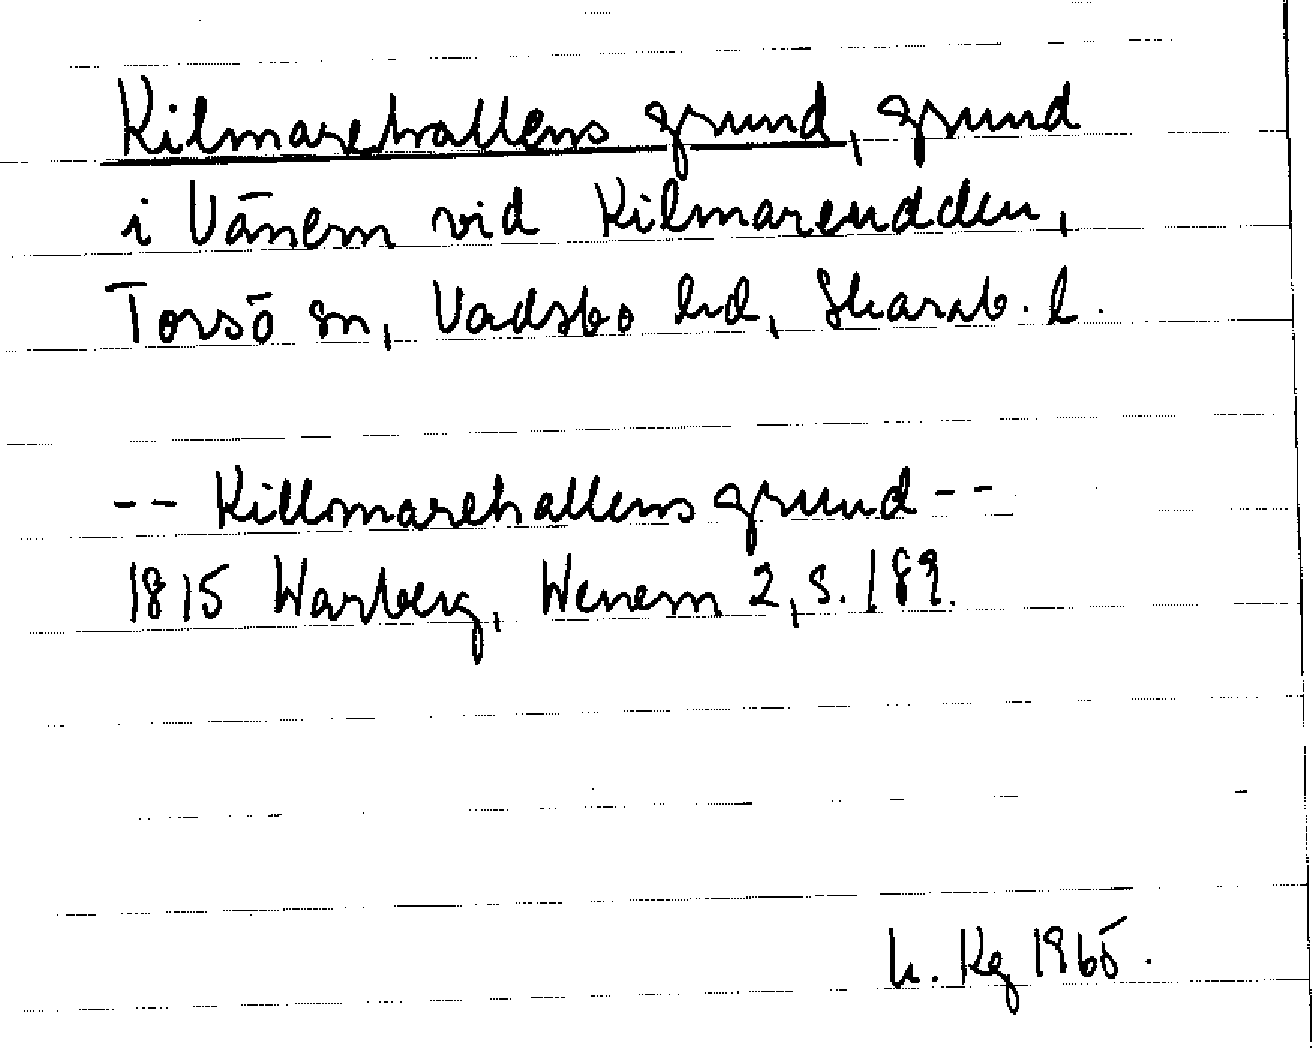 Kilmarehallens grund, grund
i Vänern vid Kilmareudden,
Torsö sn, Vadsbo hd, Skarab. l.
-- Killmarehallens grund --
1815 Warberg, Wenern 2, s. 189.
h. Kg 1965.